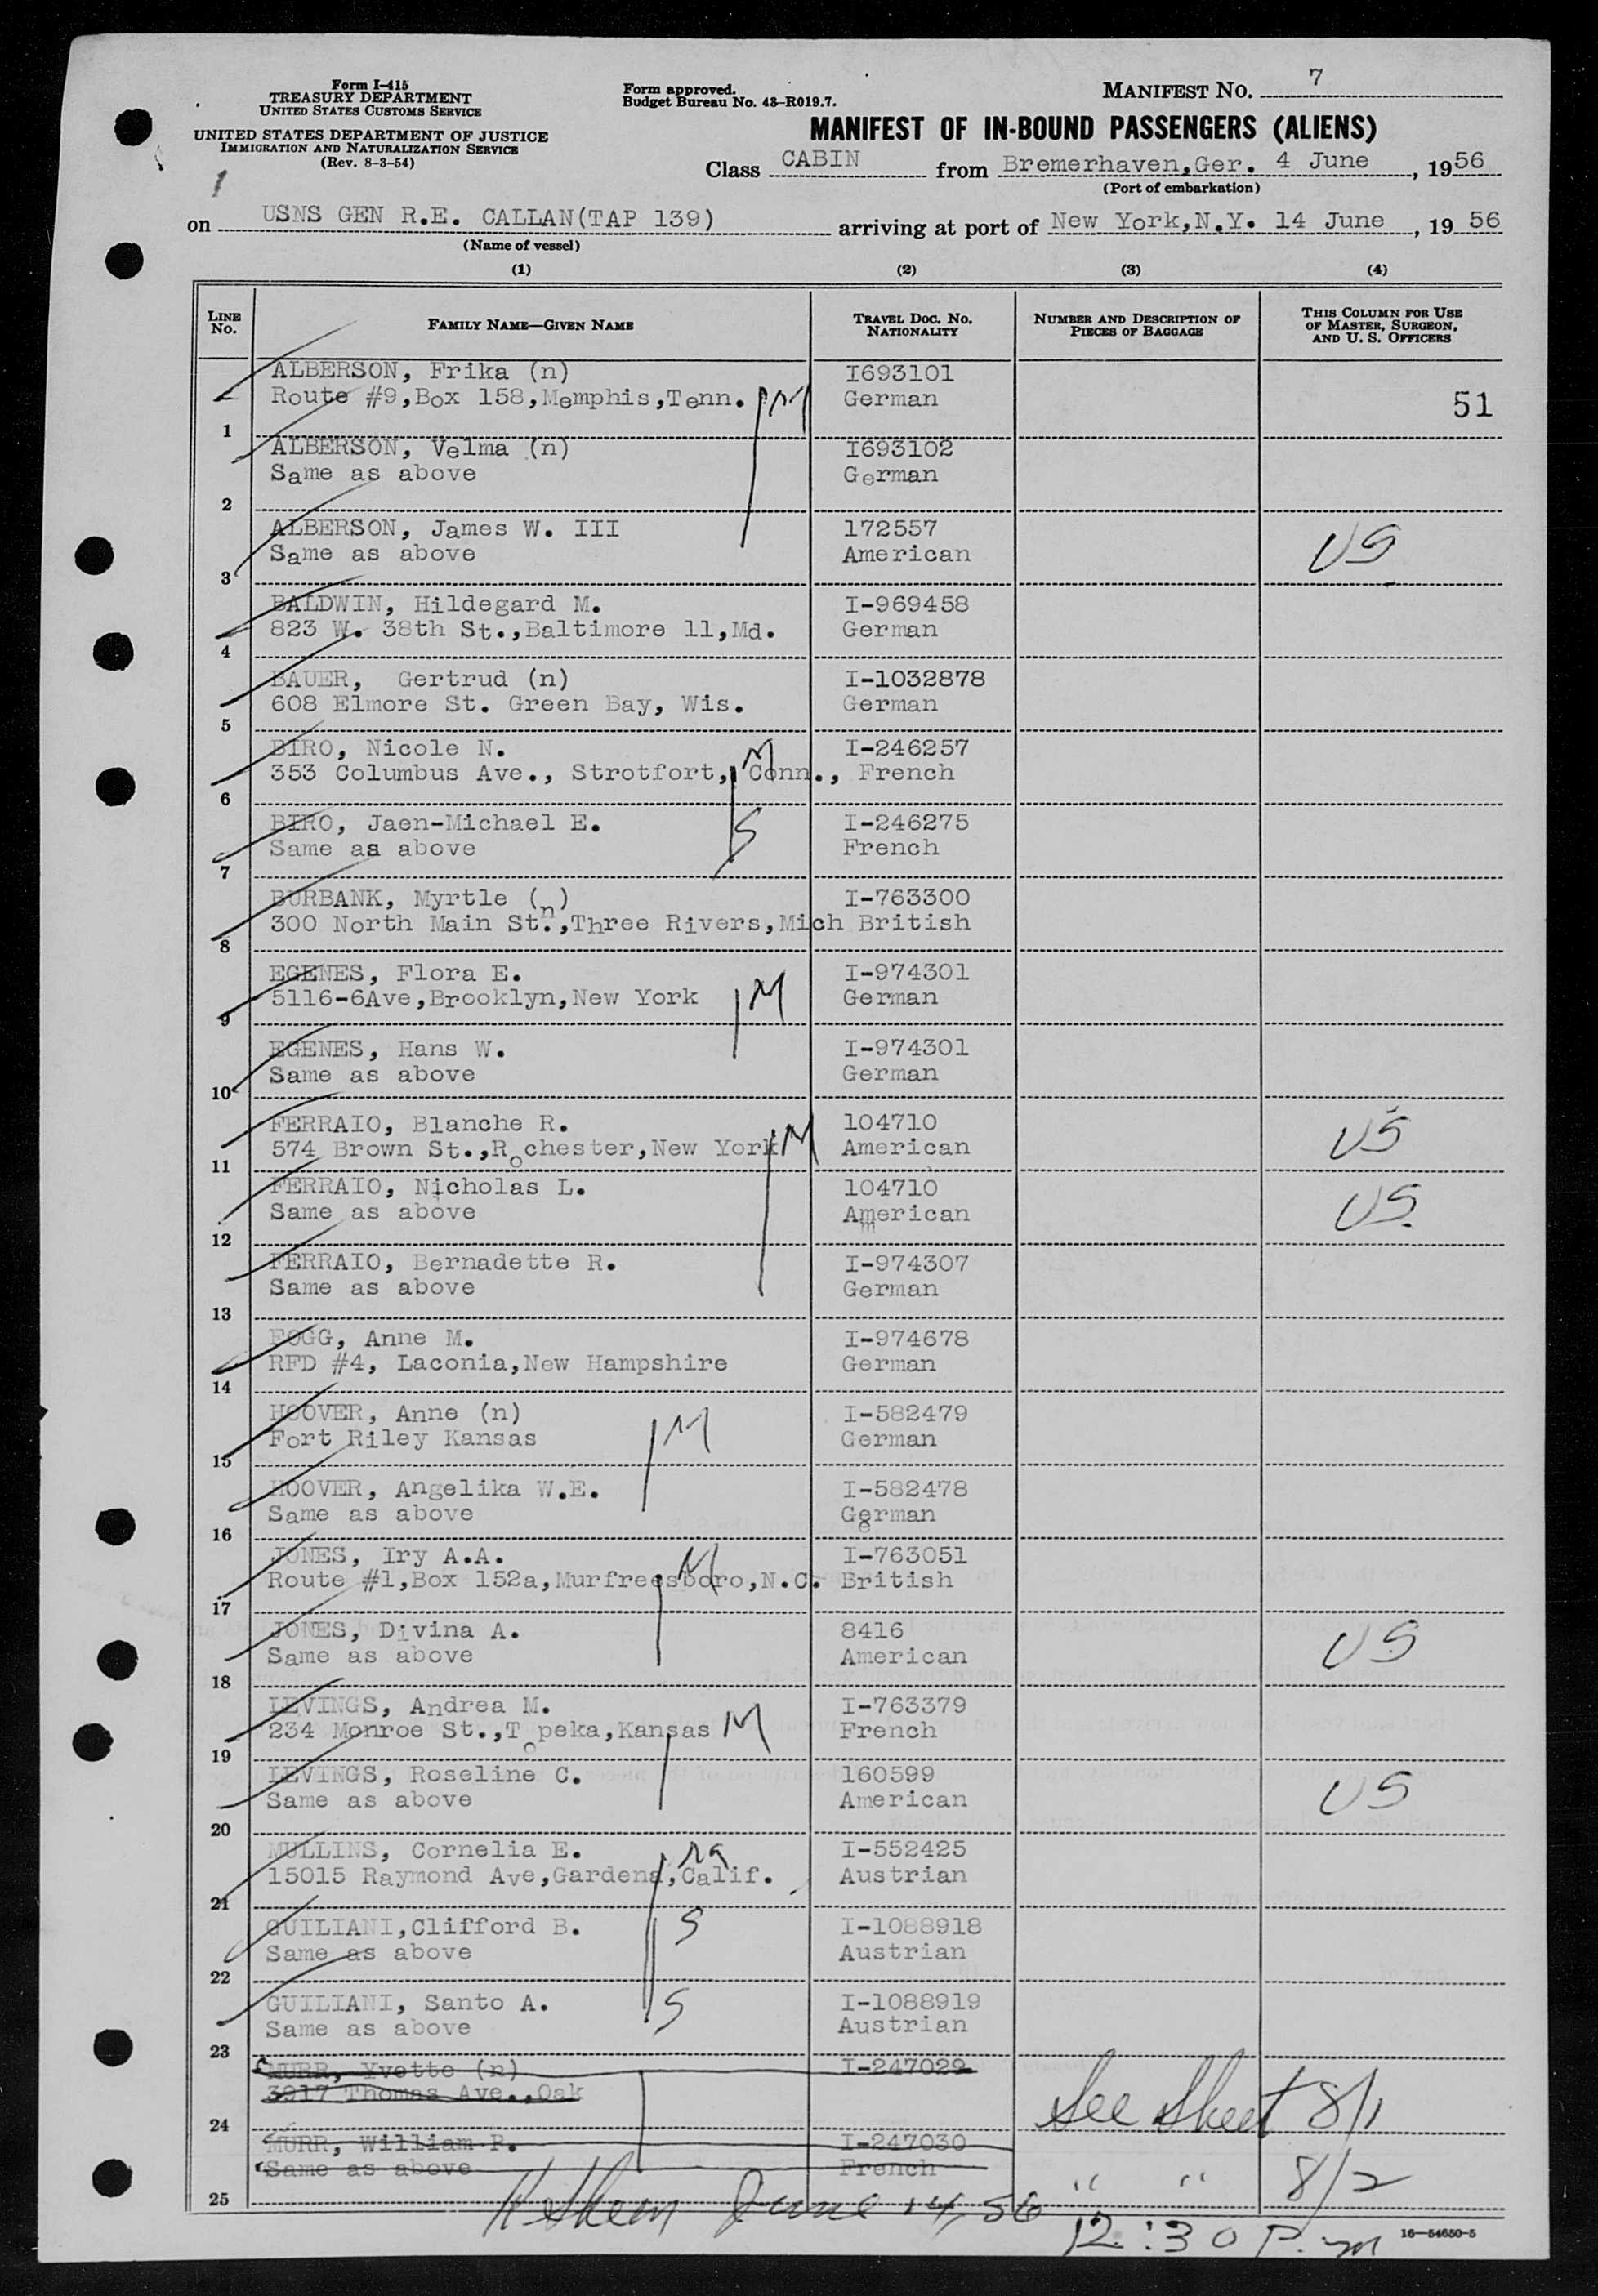 Form I-415
TREASURY DEPARTMENT
UNITED STATES CUSTOMS SERVICE
UNITED STATES DEPARTMENT OF JUSTICE
IMMIGRATION AND NATURALIZATION SERVICE
(Rev. 8-3-54)
Form approved.
Budget Bureau No. 43-R019.7.
MANIFEST NO. 7
MANIFEST OF IN-BOUND PASSENGERS (ALIENS)
Class CABIN from Bremerhaven,Ger. 4 June, 1956
(Port of embarkation)
1
on USNS GEN R.E. CALLAN(TAP 139) arriving at port of New York,N.Y. 14 June, 1956
(Name of vessel)
(1) (2) (3) (4)
LINE NO. FAMILY NAME—GIVEN NAME TRAVEL DOC. NO. NATIONALITY NUMBER AND DESCRIPTION OF PIECES OF BAGGAGE THIS COLUMN FOR USE OF MASTER, SURGEON, AND U. S. OFFICERS
ALBERSON, Frika (n) I693101
Route #9,Box 158,Memphis,Tenn. M German 51
1
ALBERSON, Velma (n) I693102
Same as above German
2
ALBERSON, James W. III 172557
Same as above American US
3
BALDWIN, Hildegard M. I-969458
823 W. 38th St.,Baltimore 11,Md. German
4
BAUER, Gertrud (n) I-1032878
608 Elmore St. Green Bay, Wis. German
5
BIRO, Nicole N. M I-246257
353 Columbus Ave., Strotfort, Conn., French
6
BIRO, Jaen-Michael E. S I-246275
Same as above French
7
BURBANK, Myrtle (n) I-763300
300 North Main St.,Three Rivers,Mich British
8
EGENES, Flora E. I-974301
5116-6Ave,Brooklyn,New York M German
9
EGENES, Hans W. I-974301
Same as above German
10
FERRAIO, Blanche R. 104710
574 Brown St.,Rochester,New York M American US
11
FERRAIO, Nicholas L. 104710
Same as above American US
12
FERRAIO, Bernadette R. I-974307
Same as above German
13
FOGG, Anne M. I-974678
RFD #4, Laconia,New Hampshire German
14
HOOVER, Anne (n) M I-582479
Fort Riley Kansas German
15
HOOVER, Angelika W.E. I-582478
Same as above German
16
JONES, Iry A.A. M I-763051
Route #1,Box 152a,Murfreesboro,N.C. British
17
JONES, Divina A. 8416
Same as above American US
18
LEVINGS, Andrea M. I-763379
234 Monroe St.,Topeka,Kansas M French
19
LEVINGS, Roseline C. 160599
Same as above American US
20
MULLINS, Cornelia E. I-552425
15015 Raymond Ave,Gardena,Calif. Austrian
21
GUILIANI,Clifford B. S I-1088918
Same as above Austrian
22
GUILIANI, Santo A. S I-1088919
Same as above Austrian
23
MURR, Yvette (n) I-247029
3917 Thomas Ave.,Oak See Sheet 8/1
24
MURR, William P. I-247030
Same as above French " " 8/2
25
June 14, 56
12:30 P.m
16—54650-5